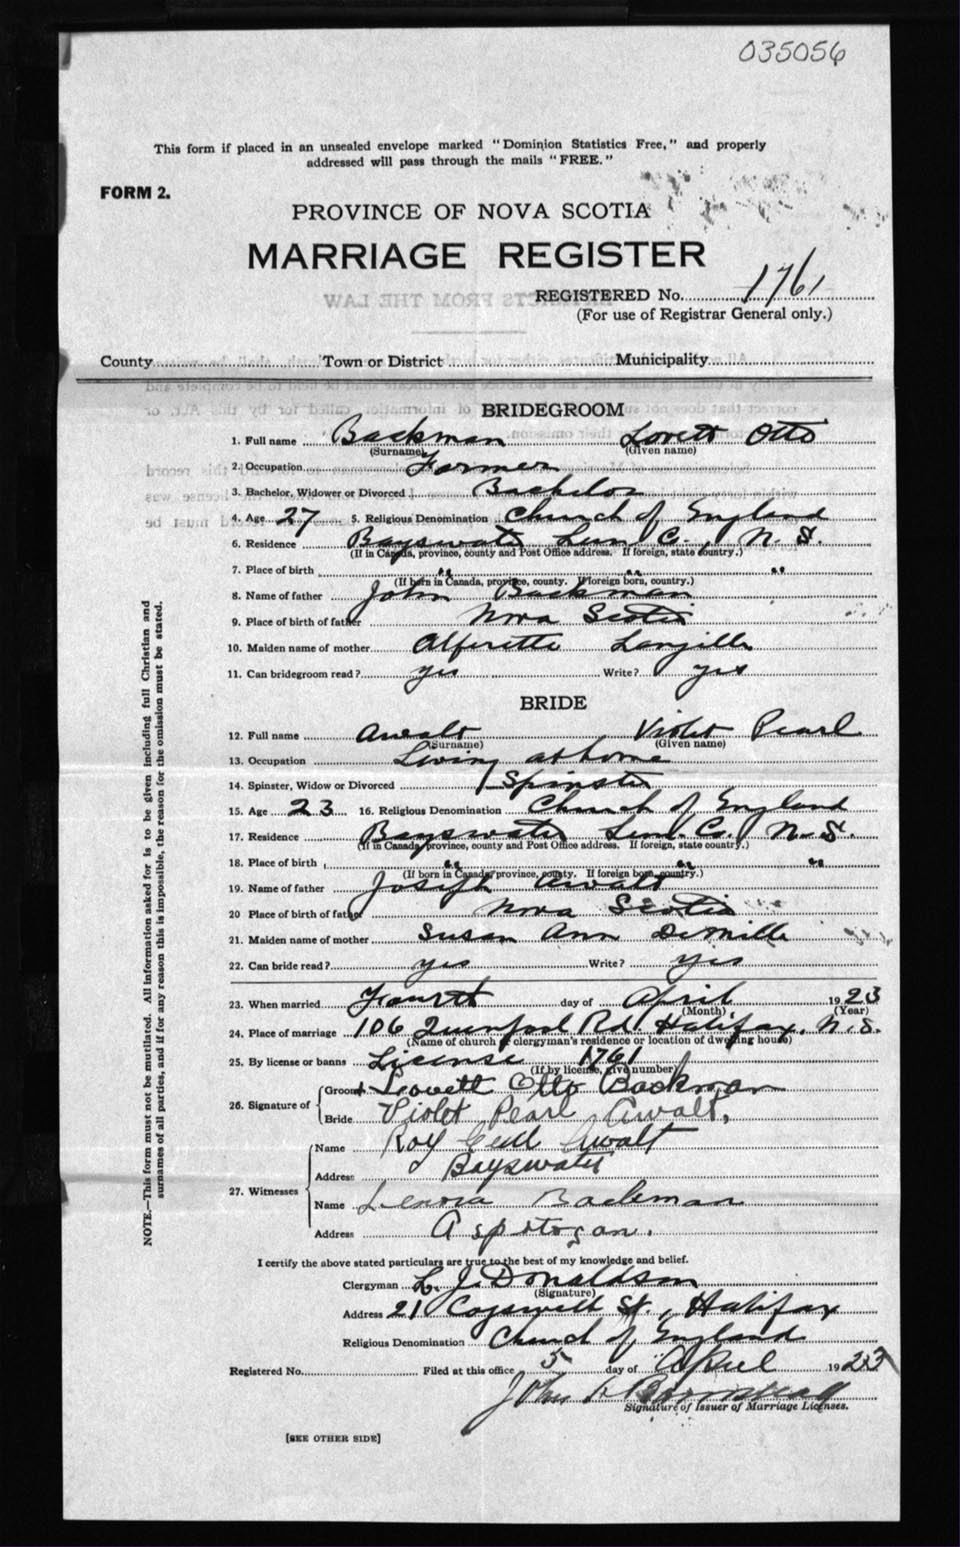 035056
This form if placed in an unsealed envelope marked "Dominion Statistics Free," and properly
addressed will pass through the mails "FREE."
FORM 2.
PROVINCE OF NOVA SCOTIA
MARRIAGE REGISTER
REGISTERED No. 1761
(For use of Registrar General only.)
County Town or District Municipality
BRIDEGROOM
1. Full name Backman Lovett Otto
(Surname) (Given name)
2. Occupation Farmer
3. Bachelor, Widower or Divorced Bachelor
4. Age 27 5. Religious Denomination Church of England
6. Residence Bayswater Lun. C., N. S.
(If in Canada, province, county and Post Office address. If foreign, state country.)
7. Place of birth " " "
(If born in Canada, province, county. If foreign born, country.)
8. Name of father John Backman
9. Place of birth of father Nova Scotia
10. Maiden name of mother Alferetta Langille
11. Can bridegroom read? yes Write? yes
BRIDE
12. Full name Awalt Violet Pearl
(Surname) (Given name)
13. Occupation Living at home
14. Spinster, Widow or Divorced Spinster
15. Age 23 16. Religious Denomination Church of England
17. Residence Bayswater Lun. Co. N. S.
(If in Canada, province, county and Post Office address. If foreign, state country.)
18. Place of birth " " "
(If born in Canada, province, county. If foreign born, country.)
19. Name of father Joseph Awalt
20 Place of birth of father Nova Scotia
21. Maiden name of mother Susan Ann DeMille
22. Can bride read? yes Write? yes
23. When married Fourth day of April 1923
(Month) (Year)
24. Place of marriage 106 Quinpool Rd. Halifax, N. S.
(Name of church or clergyman's residence or location of dwelling house)
25. By license or banns License 1761
(If by license, give number)
26. Signature of Groom Lovett Otto Backman
Bride Violet Pearl Awalt,
27. Witnesses Name Roy Awalt
Address Bayswater
Name Lenora Backman
Address Aspotogan.
I certify the above stated particulars are true to the best of my knowledge and belief.
Clergyman L. J. Donaldson
(Signature)
Address 21 Cogswell St., Halifax
Religious Denomination Church of England
Registered No. Filed at this office 5 day of April 1923
John
Signature of Issuer of Marriage Licenses.
[SEE OTHER SIDE]
NOTE.—This form must not be mutilated. All information asked for is to be given including full Christian and
surnames of all parties, and if for any reason this is impossible, the reason for the omission must be stated.